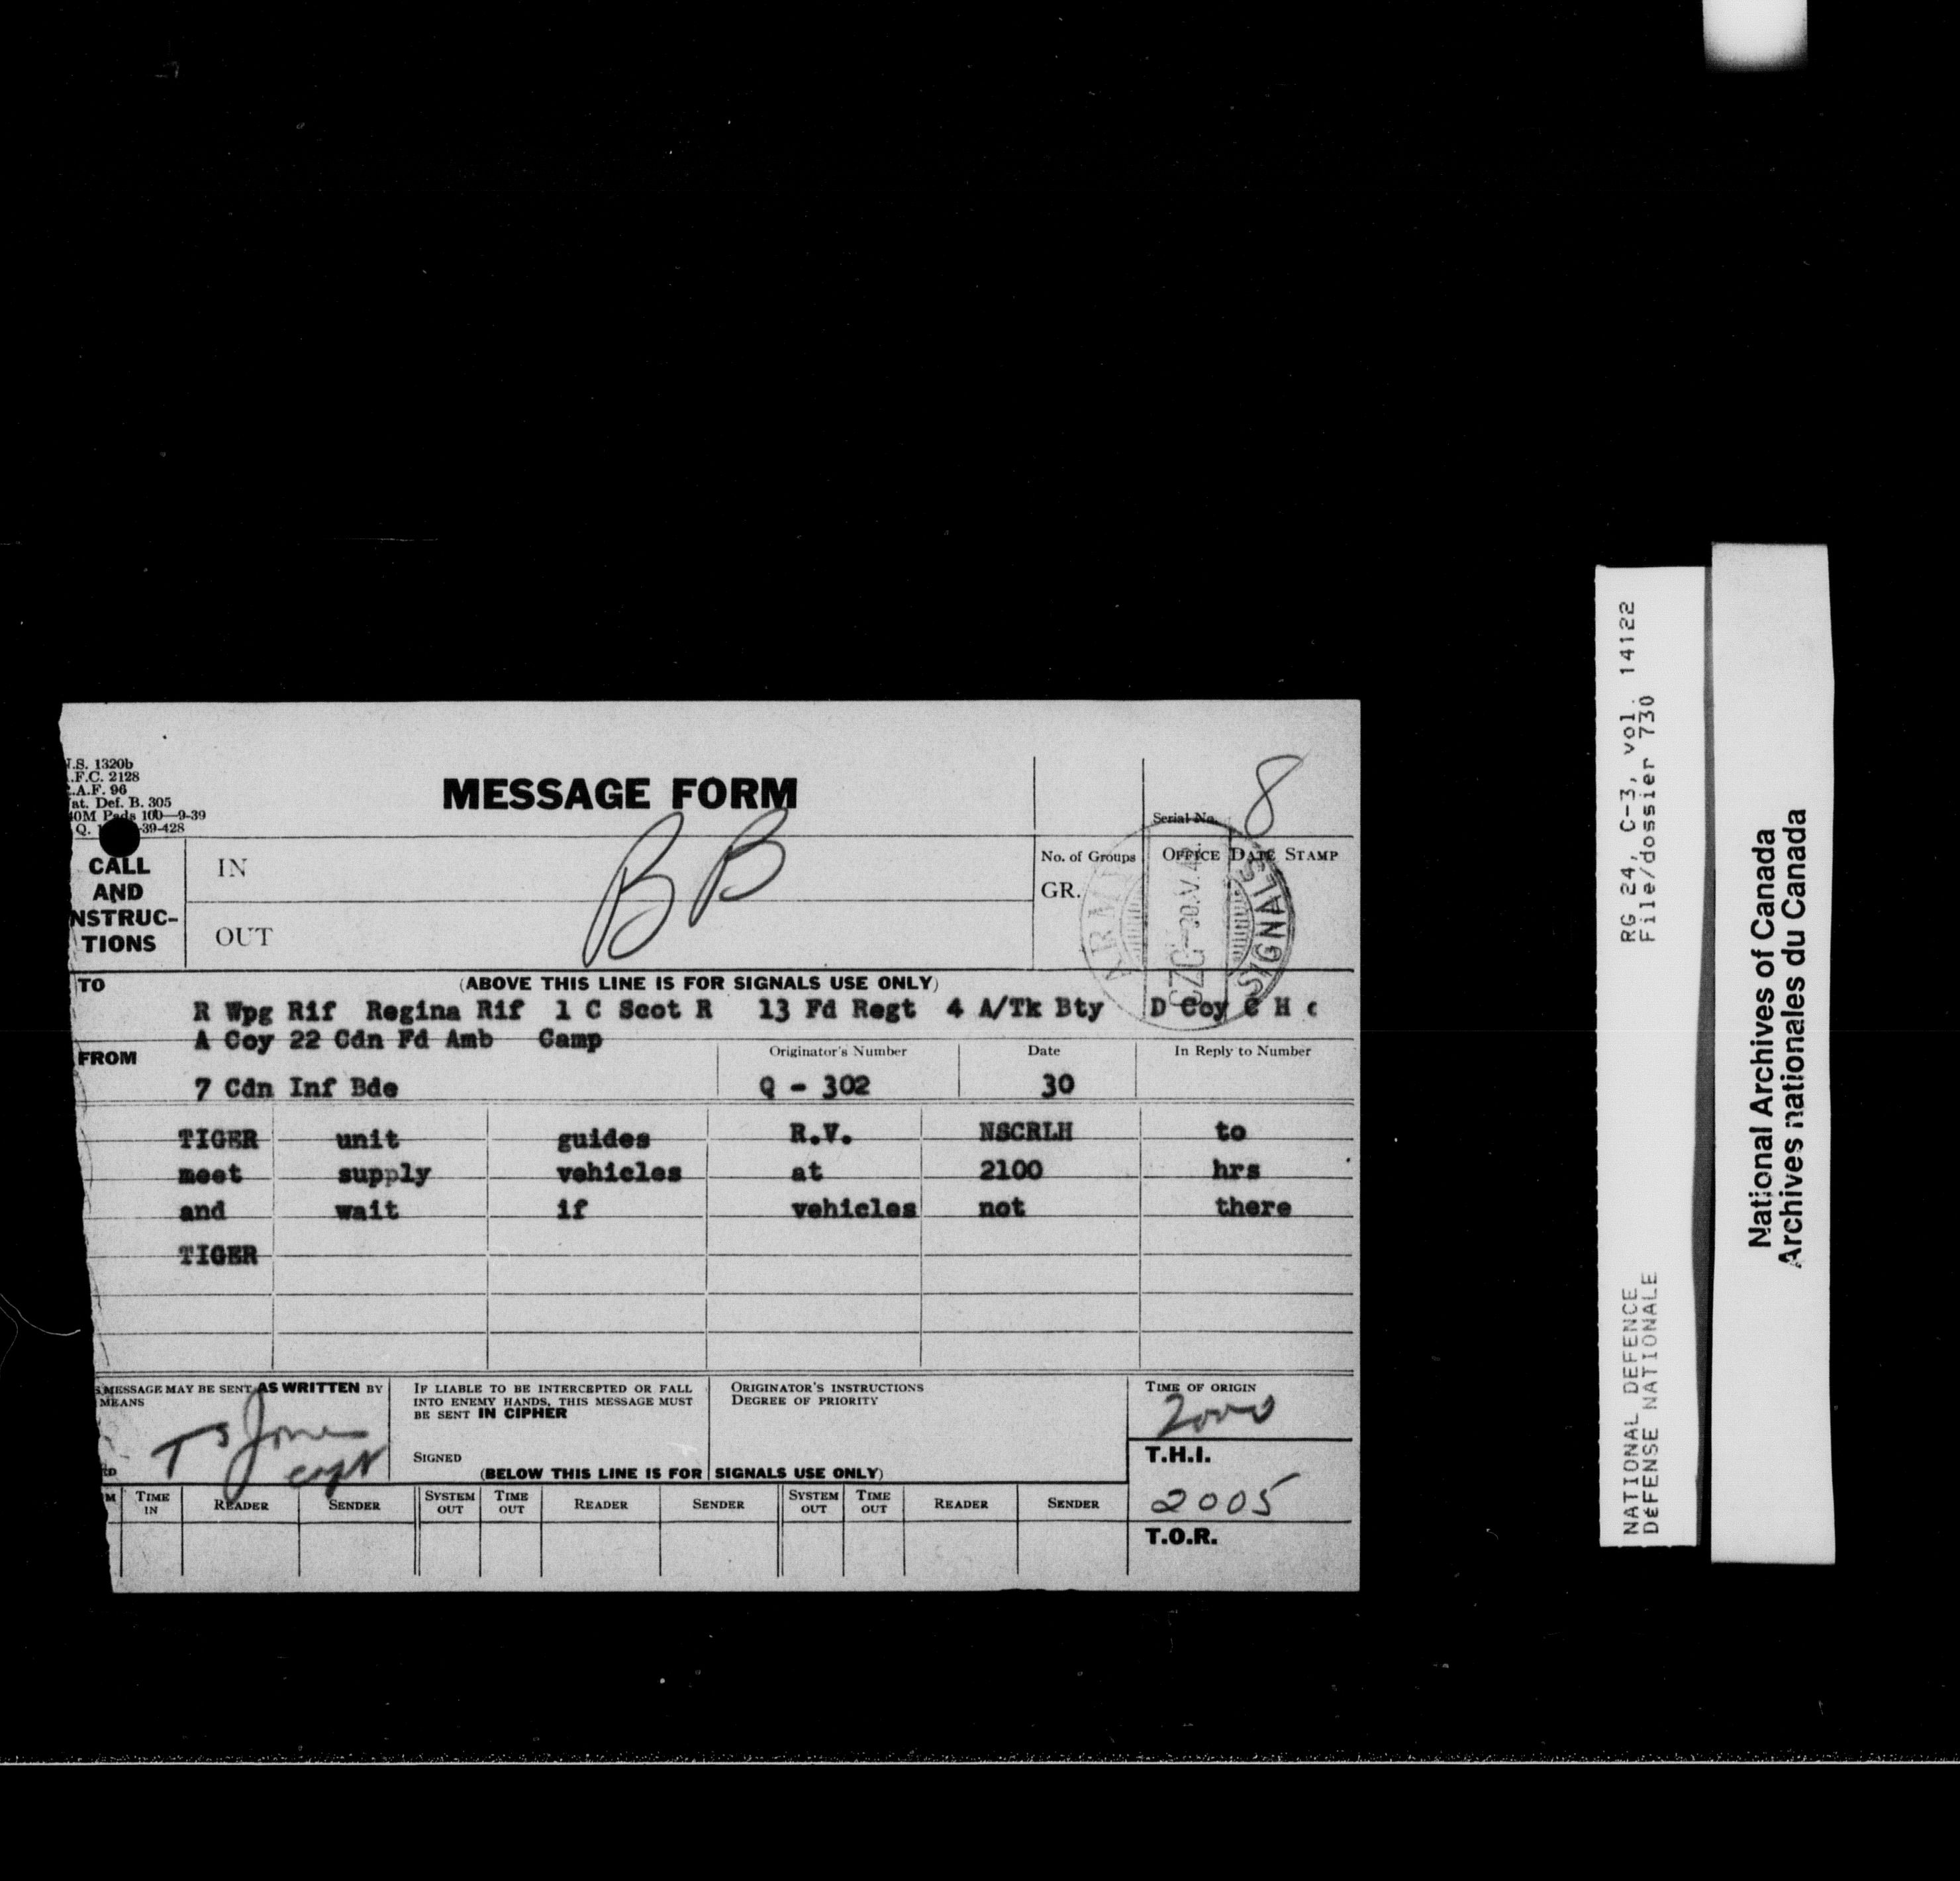 .S. 1320b
.F.C. 2128
.A.F. 96
at. Def. B. 305
40M Pads 100—9-39
Q. 1 -39-428
MESSAGE FORM
Serial No. 8
CALL AND NSTRUC- TIONS
IN
OUT
BB
No. of Groups
GR.
OFFICE DATE STAMP
ARMY SIGNALS
CZC
TO
(ABOVE THIS LINE IS FOR SIGNALS USE ONLY)
R Wpg Rif Regina Rif 1 C Scot R 13 Fd Regt 4 A/Tk Bty D Coy C H
A Coy 22 Cdn Fd Amb Camp
FROM Originator's Number Date In Reply to Number
7 Cdn Inf Bde Q - 302 30
TIGER unit guides R.V. NSCRLH to
meet supply vehicles at 2100 hrs
and wait if vehicles not there
TIGER
MESSAGE MAY BE SENT AS WRITTEN BY
MEANS
T S Jones
capt
IF LIABLE TO BE INTERCEPTED OR FALL
INTO ENEMY HANDS, THIS MESSAGE MUST
BE SENT IN CIPHER
SIGNED
ORIGINATOR'S INSTRUCTIONS
DEGREE OF PRIORITY
TIME OF ORIGIN
2000
T.H.I.
2005
T.O.R.
(BELOW THIS LINE IS FOR SIGNALS USE ONLY)
M TIME IN READER SENDER SYSTEM OUT TIME OUT READER SENDER SYSTEM OUT TIME OUT READER SENDER
RG 24, C-3, vol. 14122
File/dossier 730
NATIONAL DEFENCE
DÉFENSE NATIONALE
National Archives of Canada
Archives nationales du Canada